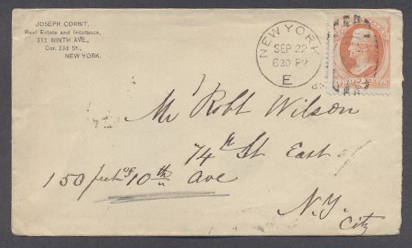 JOSEPH CORBIT,
Real Estate and Insurance,
313 NINTH AVE.,
Cor. 23d St.,
NEW YORK.
NEW YORK
SEP 22
630 PM
E
Mr Robt Wilson
74th St East of
150 feet of 10th Ave
N.Y.
City